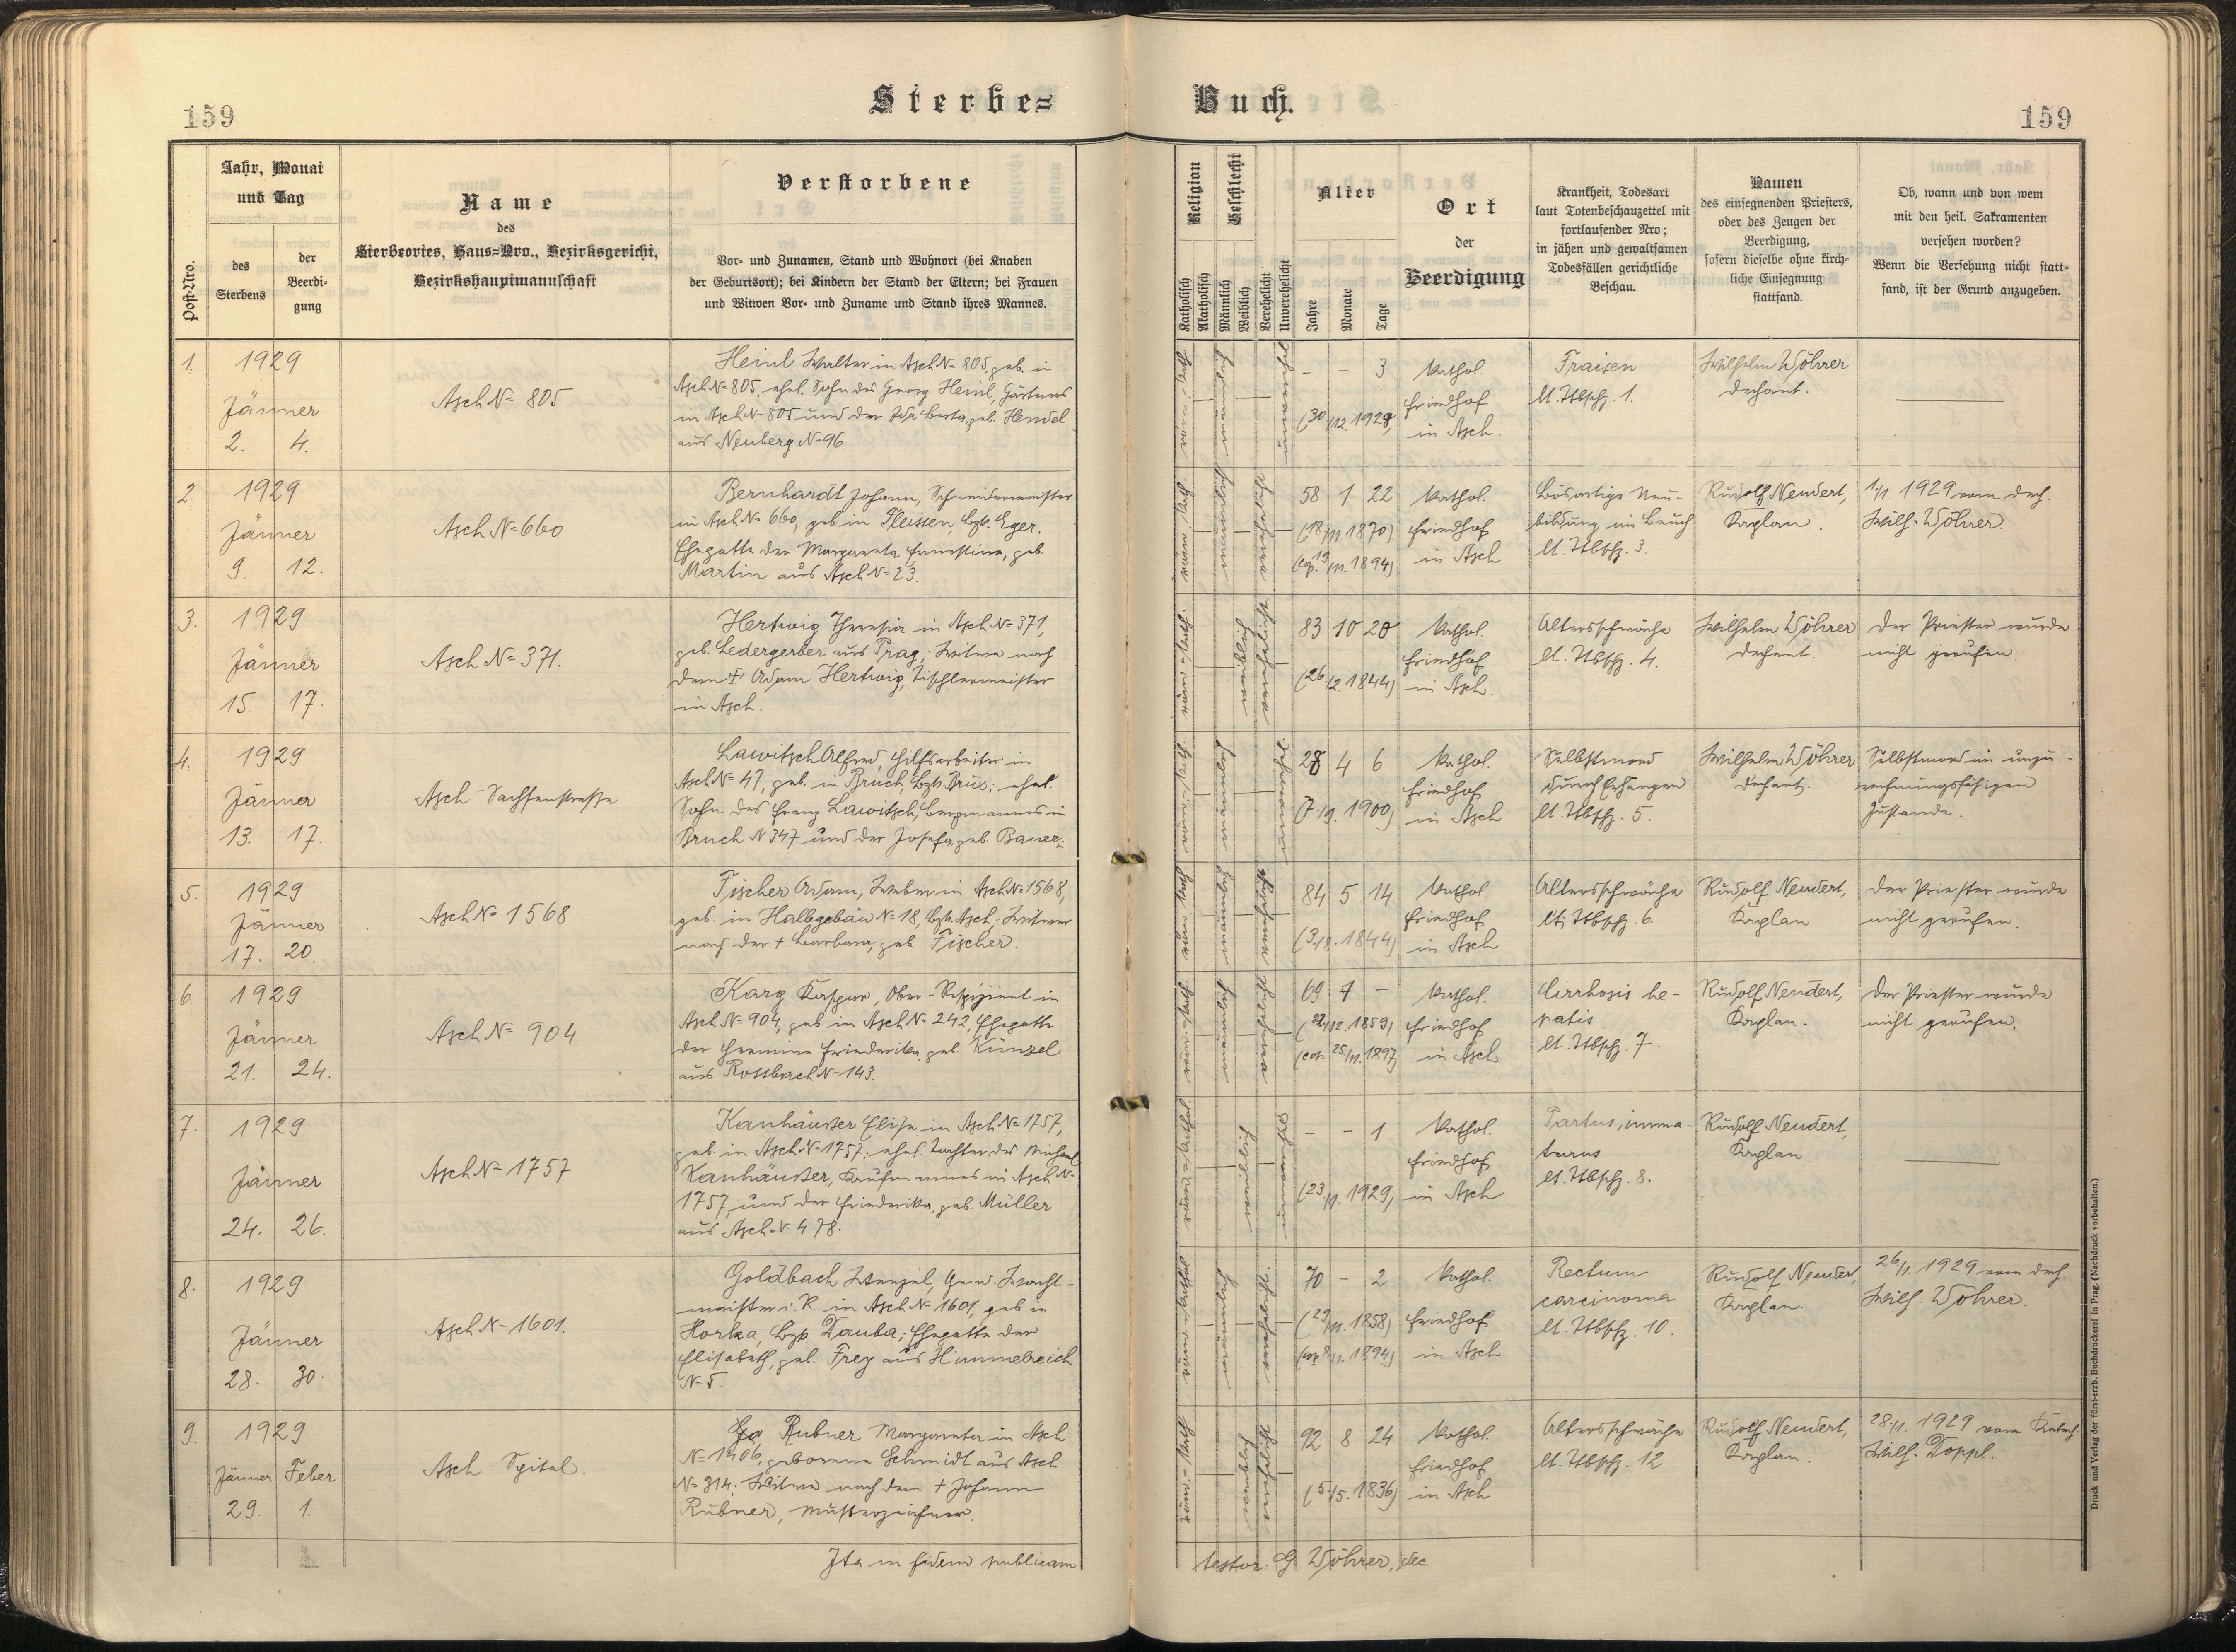 159
Sterbe=
Buch.
159
Post-Nro.
Jahr, Monat
und Tag
des
Sterbens
der
Beerdi-
gung
Name
des
Sterbeortes, Haus=Nro., Bezirksgericht,
Bezirkshauptmannschaft
Verstorbene
Vor- und Zunamen, Stand und Wohnort (bei Knaben
der Geburtsort); bei Kindern der Stand der Eltern; bei Frauen
und Witwen Vor- und Zuname und Stand ihres Mannes.
Religion
Katholisch
Akatholisch
Geschlecht
Männlich
Weiblich
Verehelicht
Unverehelicht
Alter
Jahre
Monate
Tage
Ort
der
Beerdigung
Krankheit, Todesart
laut Totenbeschauzettel mit
fortlaufender Nro;
in jähen und gewaltsamen
Todesfällen gerichtliche
Beschau.
Namen
des einsegnenden Priesters,
oder des Zeugen der
Beerdigung,
sofern dieselbe ohne kirch-
liche Einsegnung
stattfand.
Ob, wann und von wem
mit den heil. Sakramenten
versehen worden?
Wenn die Versehung nicht statt=
fand, ist der Grund anzugeben.
1.
1929
Jänner
2. 4.
Asch N= 805
Heinl Walter in Asch N= 805, geb. in
Asch N= 805, ehel. Sohn des Georg Heinl, Gärtners
in Asch N= 805 und der Ida Berta, geb. Hendel
aus Neuberg N= 96.
röm.-kath.
männl.
unverehel.
- - 3
(30/12. 1928)
Kathol.
Friedhof
in Asch.
Fraisen
lt. Tbschz. 1.
Wilhelm Wöhrer
Dechant.
2.
1929
Jänner
9. 12.
Asch N= 660
Bernhardt Johann, Schneidermeister
in Asch N= 660, geb. in Fleissen, Bzk. Eger.
Ehegatte der Margareta Ernestine, geb.
Martin aus Asch N= 23.
58 1 22
(18/11 1870)
(cop. 13/11. 1894)
Kathol.
Friedhof
in Asch
Bösartige Neu-
bildung im Bauch
lt. Tbschz. 3.
Rudolf Neudert,
Kaplan.
1/1 1929 vom Dech.
Wilh. Wöhrer.
3.
1929
Jänner
15. 17.
Asch N= 371.
Hertwig Theresia in Asch N= 371,
geb. Ledergerber aus Prag; Witwe nach
dem † Adam Hertwig, Tischlermeister
in Asch.
83 10 20
(26/2. 1844)
Kathol.
Friedhof
in Asch.
Altersschwäche
lt. Tbschz. 4.
Wilhelm Wöhrer
Dechant.
Der Priester wurde
nicht gerufen.
4.
1929
Jänner
13. 17.
Asch - Sachsenstrasse
Lawitsch Alfred, Hilfsarbeiter in
Asch N= 47, geb. in Bruch, Bzk. Brüx; ehel.
Sohn des Franz Lawitsch, Bergmannes in
Bruch N 347 und der Josefa, geb. Bauer.
28 4 6
(7./9. 1900)
Kathol.
Friedhof
in Asch
Selbstmord
durch Erhängen
lt. Tbschz. 5.
Wilhelm Wöhrer
Dechant.
Selbstmord im unzu-
rechnungsfähigen
Zustande.
5.
1929
Jänner
17. 20.
Asch N= 1568
Fischer Adam, Weber in Asch N= 1568,
geb. in Halbgebäu N= 18, Bzk. Asch. Witwer
nach der † Barbara, geb. Fischer.
84 5 14
(3./8. 1844)
Kathol.
Friedhof
in Asch
Altersschwäche
lt. Tbschz. 6.
Rudolf Neudert,
Kaplan
Der Priester wurde
nicht gerufen.
6.
1929
Jänner
21. 24.
Asch N= 904
Karg Kaspar, Ober-Respizient in
Asch N= 904, geb. in Asch N= 242, Ehegatte
der Hermine Friederika, geb. Künzel
aus Rossbach N= 143.
69 1 -
(22/12. 1859)
(cop. 25/11. 1897)
Kathol.
Friedhof
in Asch
Cirrhosis he-
patis
lt. Tbschz. 7.
Rudolf Neudert,
Kaplan.
Der Priester wurde
nicht gerufen.
7.
1929
Jänner
24. 26.
Asch N= 1757
Kanhäuser Elise in Asch N= 1757,
geb. in Asch N= 1757; ehel. Tochter des Michael
Kanhäuser, Kaufmannes in Asch N=
1757, und der Friederika, geb. Müller
aus Asch N= 478.
- - 1
(23/1. 1929)
Kathol.
Friedhof
in Asch
Partus imma-
turus
lt. Tbschz. 8.
Rudolf Neudert,
Kaplan
8.
1929
Jänner
28. 30.
Asch N= 1601.
Goldbach Wenzel, Gend. Wacht-
meister i. R. in Asch N= 1601, geb. in
Horka, Bzk. Dauba; Ehegatte der
Elisabeth, geb. Frey aus Himmelreich
N= 5.
70 - 2
Kathol.
Friedhof
in Asch
Rectum
carcinoma
lt. Tbschz. 10.
Rudolf Neudert,
Kaplan.
26/1 1929 vom Dech.
Wilh. Wöhrer.
9.
1929
Jänner Feber
29. 1.
Asch Spital.
Rubner Margareta in Asch
N= 1406, geborene Schmidt aus Asch
N= 314. Witwe nach dem † Johann
Rubner, Musterzeichner.
92 8 24
(5./5. 1836)
Kathol.
Friedhof
in Asch
Altersschwäche
lt. Tbschz. 12
Rudolf Neudert,
Kaplan.
28./1. 1929 vom Katech.
Wilh. Doppl.
Ita in fidem publicam
testor: G. Wöhrer, dec
Druck und Verlag der fürst-erzb. Buchdruckerei in Prag. (Nachdruck vorbehalten.)